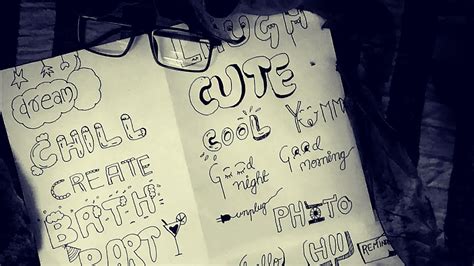 dream
CHILL
CREATE
BATH
PARTY
LAUGH
CUTE
COOL
Yumm
Good
night
Good
morning
unplug
PHOTO
hello